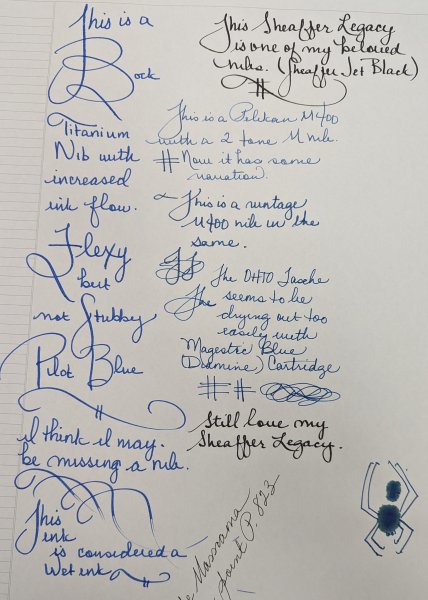 This is a
Bock
Titanium
Nib with
increased
ink flow.
Flexy
but
not Stubby
Pilot Blue
I think I may
be missing a nib.
This
ink
is considered a
wet ink
This Sheaffer Legacy
is one of my beloved
nibs. (Sheaffer Jet Black)
This is a Pelikan M400
with a 2 tone M nib.
Now it has some
variation.
This is a vintage
M400 nib in the
same.
The OHTO Tasche
The seems to be
drying out too
easily with
Magestic Blue
(Diamine) Cartridge
Still love my
Sheaffer Legacy.
point P. 823